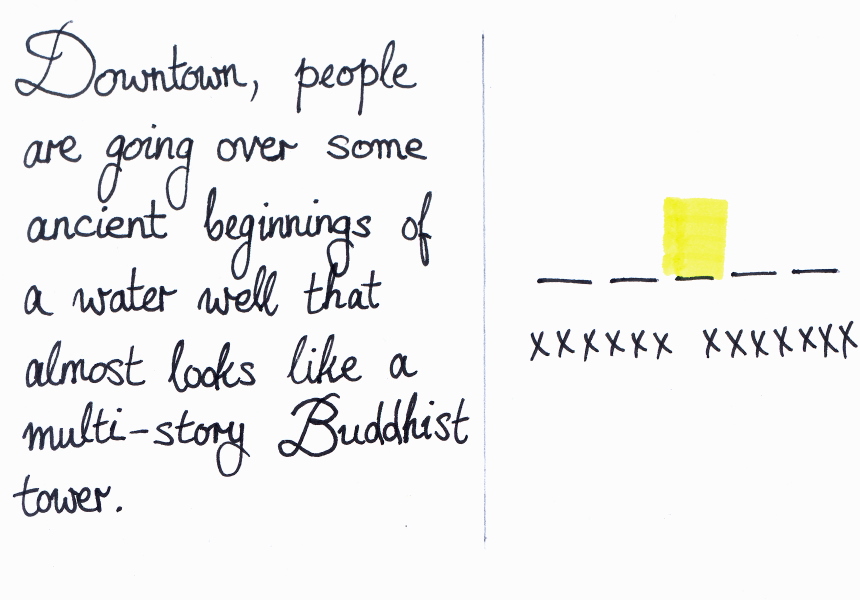 Downtown, people
are going over some
ancient beginnings of
a water well that
almost looks like a
multi-story Buddhist
tower.
_ _ _ _ _
xxxxxx xxxxxxx